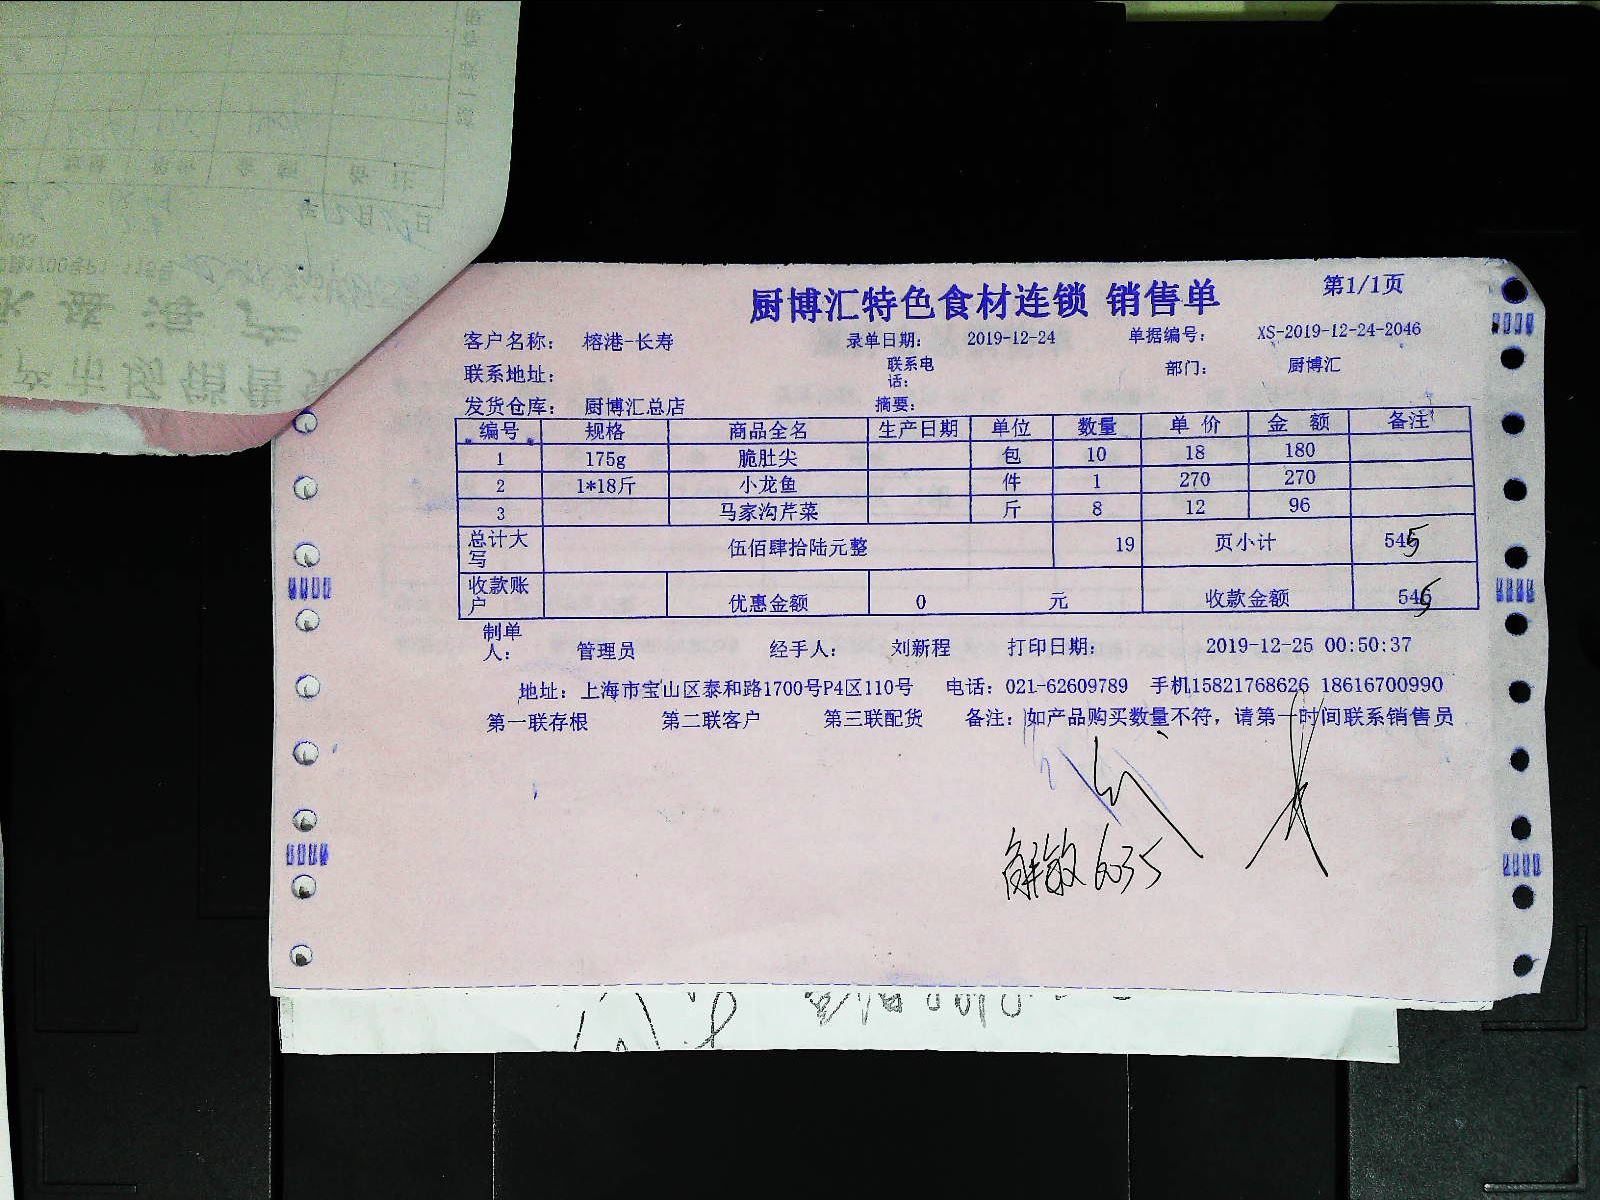 厨博汇特色食材连锁 销售单 第1/1页
客户名称： 榕港-长寿 录单日期： 2019-12-24 单据编号： XS-2019-12-24-2046
联系地址： 联系电话： 部门： 厨博汇
发货仓库： 厨博汇总店 摘要：
编号 规格 商品全名 生产日期 单位 数量 单价 金额 备注
1 175g 脆肚尖 包 10 18 180
2 1*18斤 小龙鱼 件 1 270 270
3 马家沟芹菜 斤 8 12 96
总计大写 伍佰肆拾陆元整 19 页小计 545
收款账户 优惠金额 0 元 收款金额 545
制单人： 管理员 经手人： 刘新程 打印日期： 2019-12-25 00:50:37
地址：上海市宝山区泰和路1700号P4区110号 电话：021-62609789 手机15821768626 18616700990
第一联存根 第二联客户 第三联配货 备注：如产品购买数量不符，请第一时间联系销售员
解敏 6035